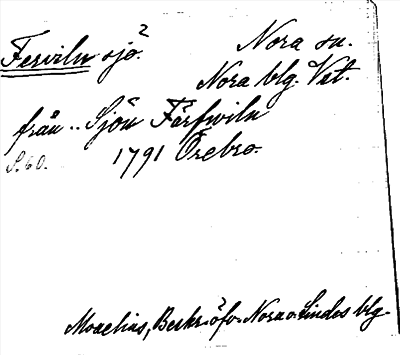 Ferviln sjö?
Nora sn.
Nora blg. Vst.
från .. Sjön Färfwiln
S. 60. 1791 Örebro.
Moxelius, Beskr. öfv. Nora o. Lindes blg.